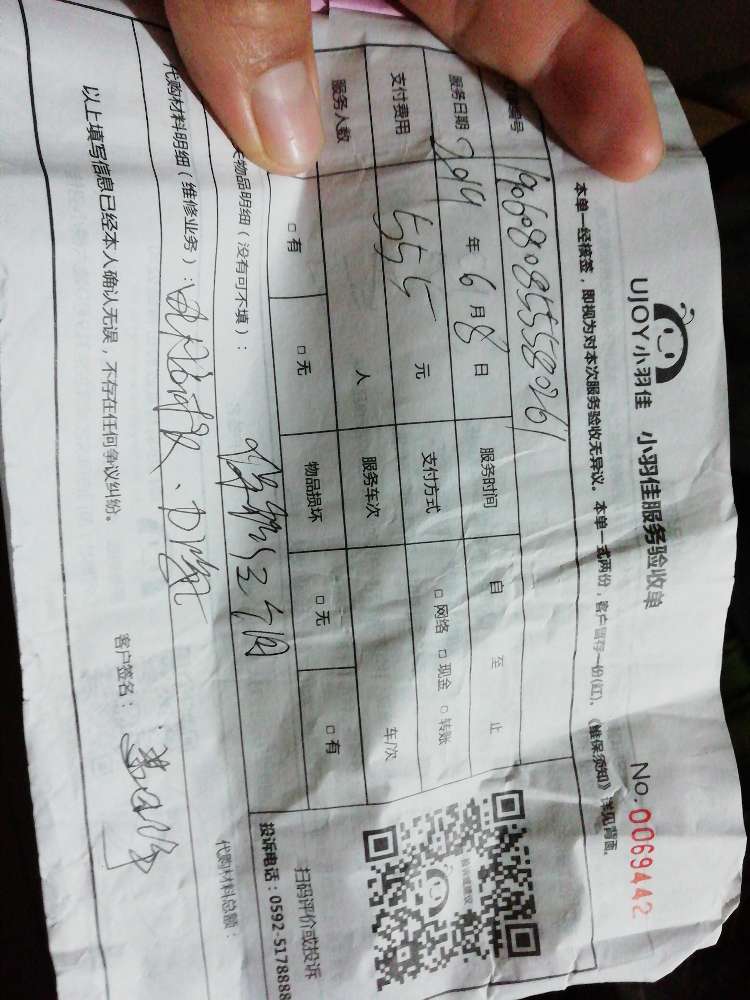 UJOY小羽佳 小羽佳服务验收单 No.0069442
本单一经核签，即视为对本次服务验收无异议。本单一式两份，客户留存一份(红)。《维保须知》详见背面。
编号 190608085558096
服务日期 2019 年 6 月 8 日 服务时间 自 至 止
支付费用 元 支付方式 □ 网络 □ 现金 □ 转账
服务人数 人 服务车次 车/次
□ 有 □ 无 物品损坏 □ 无 □ 有
物品明细（没有可不填）：
代购材料明细（维修业务）：
代购材料总额：
扫码评价或投诉
投诉电话：0592-5178888
以上填写信息已经本人确认无误，不存在任何争议纠纷。
客户签名：